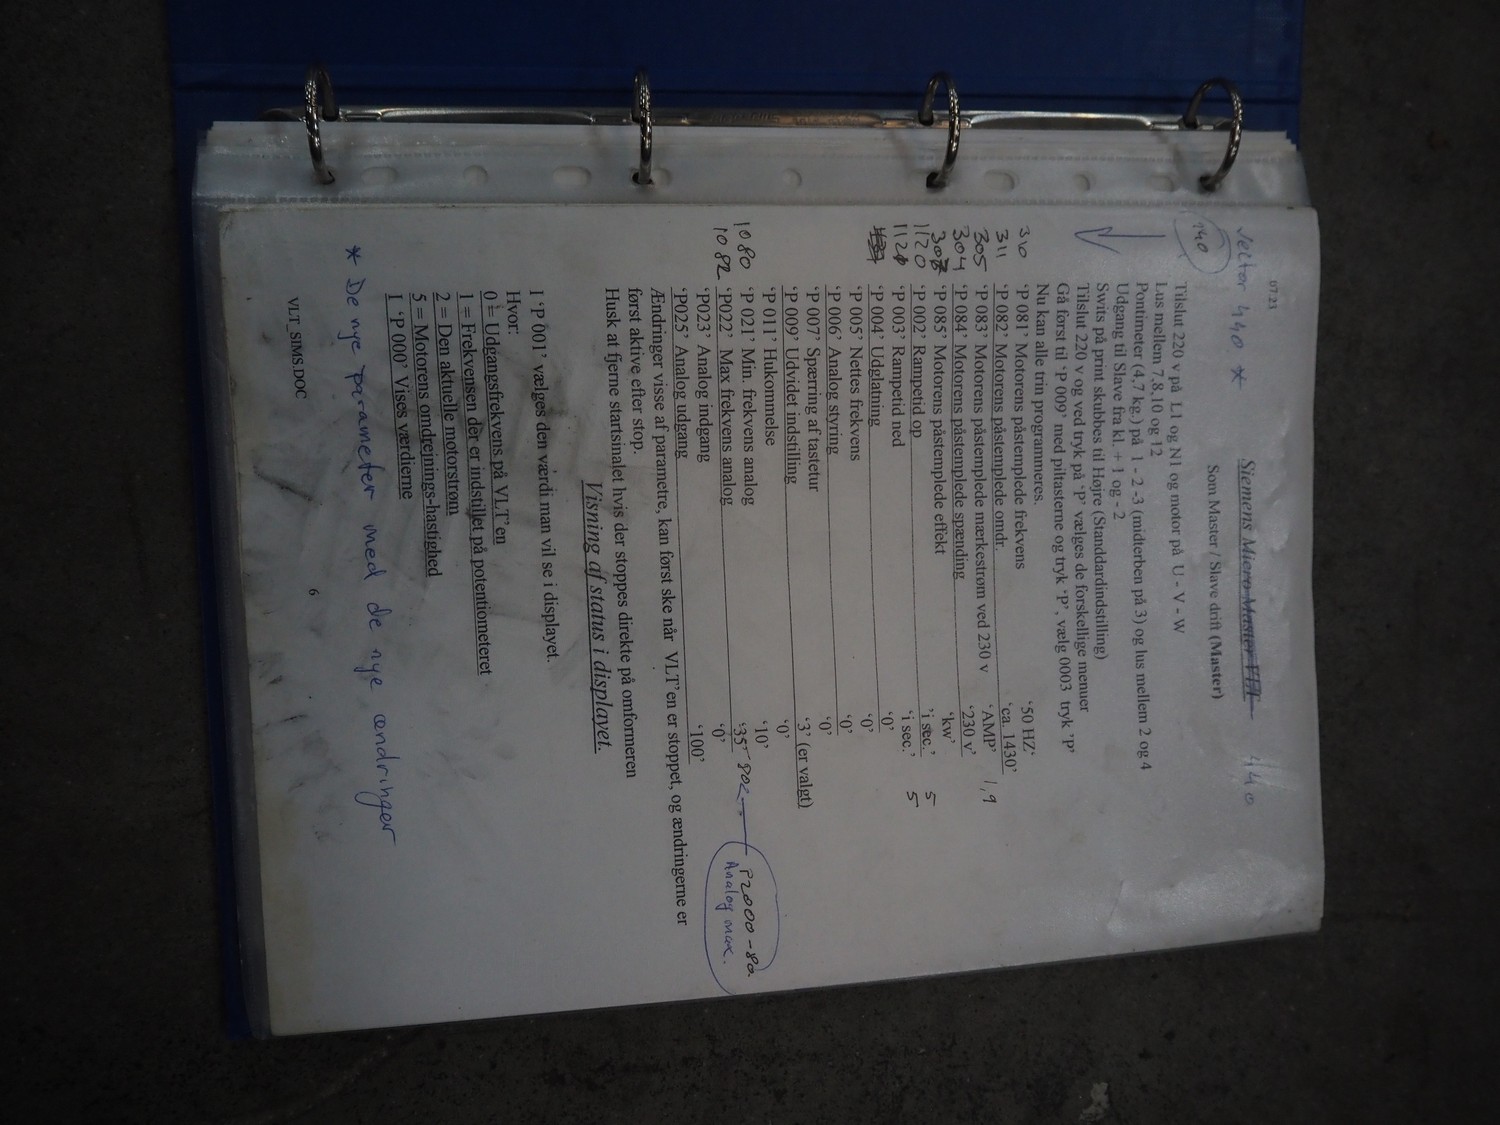 07:23
Vector 440 *
Siemens Micro Master VLT 440
Som Master / Slave drift (Master)
140
Tilslut 220 v på L1 og N1 og motor på U - V - W
Lus mellem 7,8,10 og 12
Pontimeter (4,7 kg.) på 1 - 2 -3 (midterben på 3) og lus mellem 2 og 4
Udgang til Slave fra kl. + 1 og - 2
Swits på print skubbes til Højre (Standdardindstilling)
Tilslut 220 v og ved tryk på 'P' vælges de forskellige menuer
Gå først til 'P 009' med piltasterne og tryk 'P', vælg 0003 tryk 'P'
Nu kan alle trin programmeres.
310 'P 081' Motorens påstemplede frekvens '50 HZ'
311 'P 082' Motorens påstemplede omdr. 'ca. 1430'
305 'P 083' Motorens påstemplede mærkestrøm ved 230 v 'AMP' 1,9
304 'P 084' Motorens påstemplede spænding '230 v'
307 'P 085' Motorens påstemplede effekt 'kw'
1120 'P 002' Rampetid op 'i sec.' 5
1121 'P 003' Rampetid ned 'i sec.' 5
'P 004' Udglatning '0'
'P 005' Nettes frekvens '0'
'P 006' Analog styring '0'
'P 007' Spærring af tastetur '0'
'P 009' Udvidet indstilling '3' (er valgt)
'P 011' Hukommelse '0'
1080 'P 021' Min. frekvens analog '10'
1082 'P022' Max frekvens analog '35' - 80
P2000 - 80
Analog max.
'P023' Analog indgang '0'
'P025' Analog udgang '100'
Ændringer visse af parametre, kan først ske når VLT'en er stoppet, og ændringerne er
først aktive efter stop.
Husk at fjerne startsinalet hvis der stoppes direkte på omformeren
Visning af status i displayet.
I 'P 001' vælges den værdi man vil se i displayet.
Hvor:
0 = Udgangsfrekvens på VLT'en
1 = Frekvensen der er indstillet på potentiometeret
2 = Den aktuelle motorstrøm
5 = Motorens omdrejnings-hastighed
I 'P 000' Vises værdierne
* De nye parameter med de nye ændringer
VLT_SIMS.DOC 6